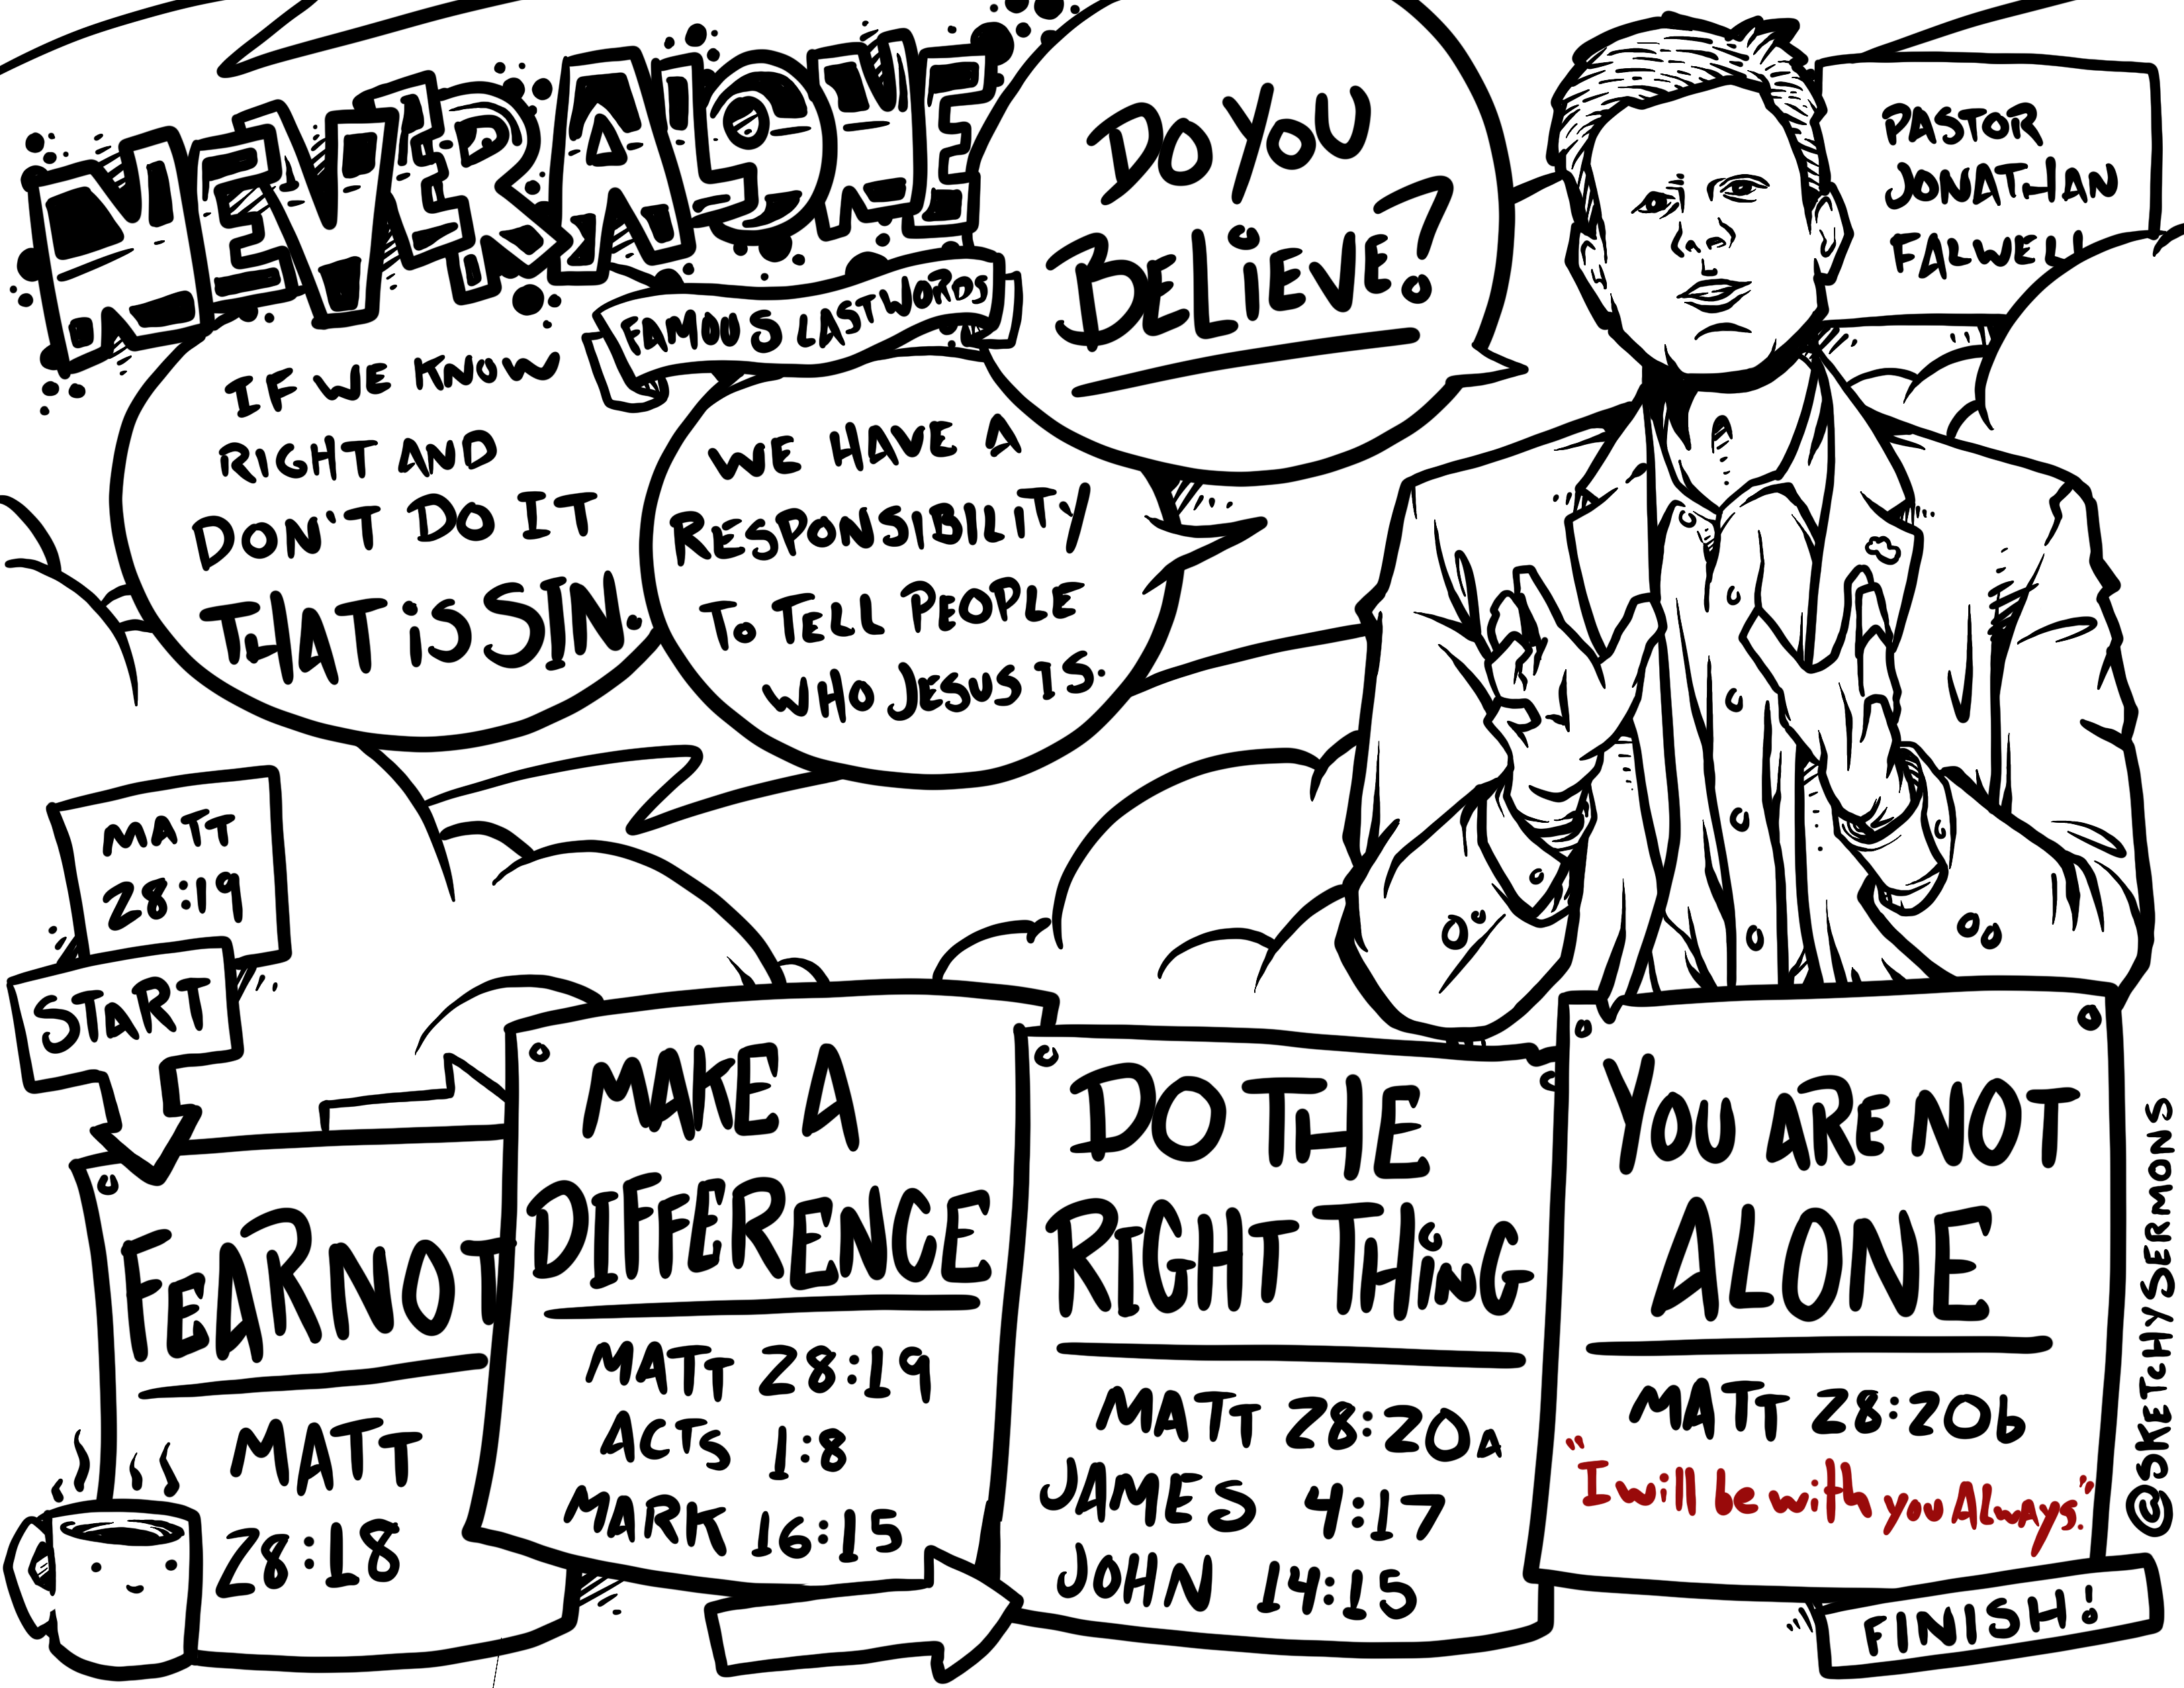 NEVER ALONE
FAMOUS LAST WORDS
DO YOU
BELIEVE?
PASTOR
JONATHAN
FALWELL
IF WE KNOW
RIGHT AND
DON'T DO IT
THAT IS SIN.
WE HAVE A
RESPONSIBILITY
TO TELL PEOPLE
WHO JESUS IS.
MATT
28:19
START
FEAR NOT
MATT
28:18
MAKE A
DIFFERENCE
MATT 28:19
ACTS 1:8
MARK 16:15
DO THE
RIGHT THING
MATT 28:20A
JAMES 4:17
JOHN 14:15
YOU ARE NOT
ALONE
MATT 28:20b
"I will be with you Always."
FINISH!
@SKETCHYSERMONS